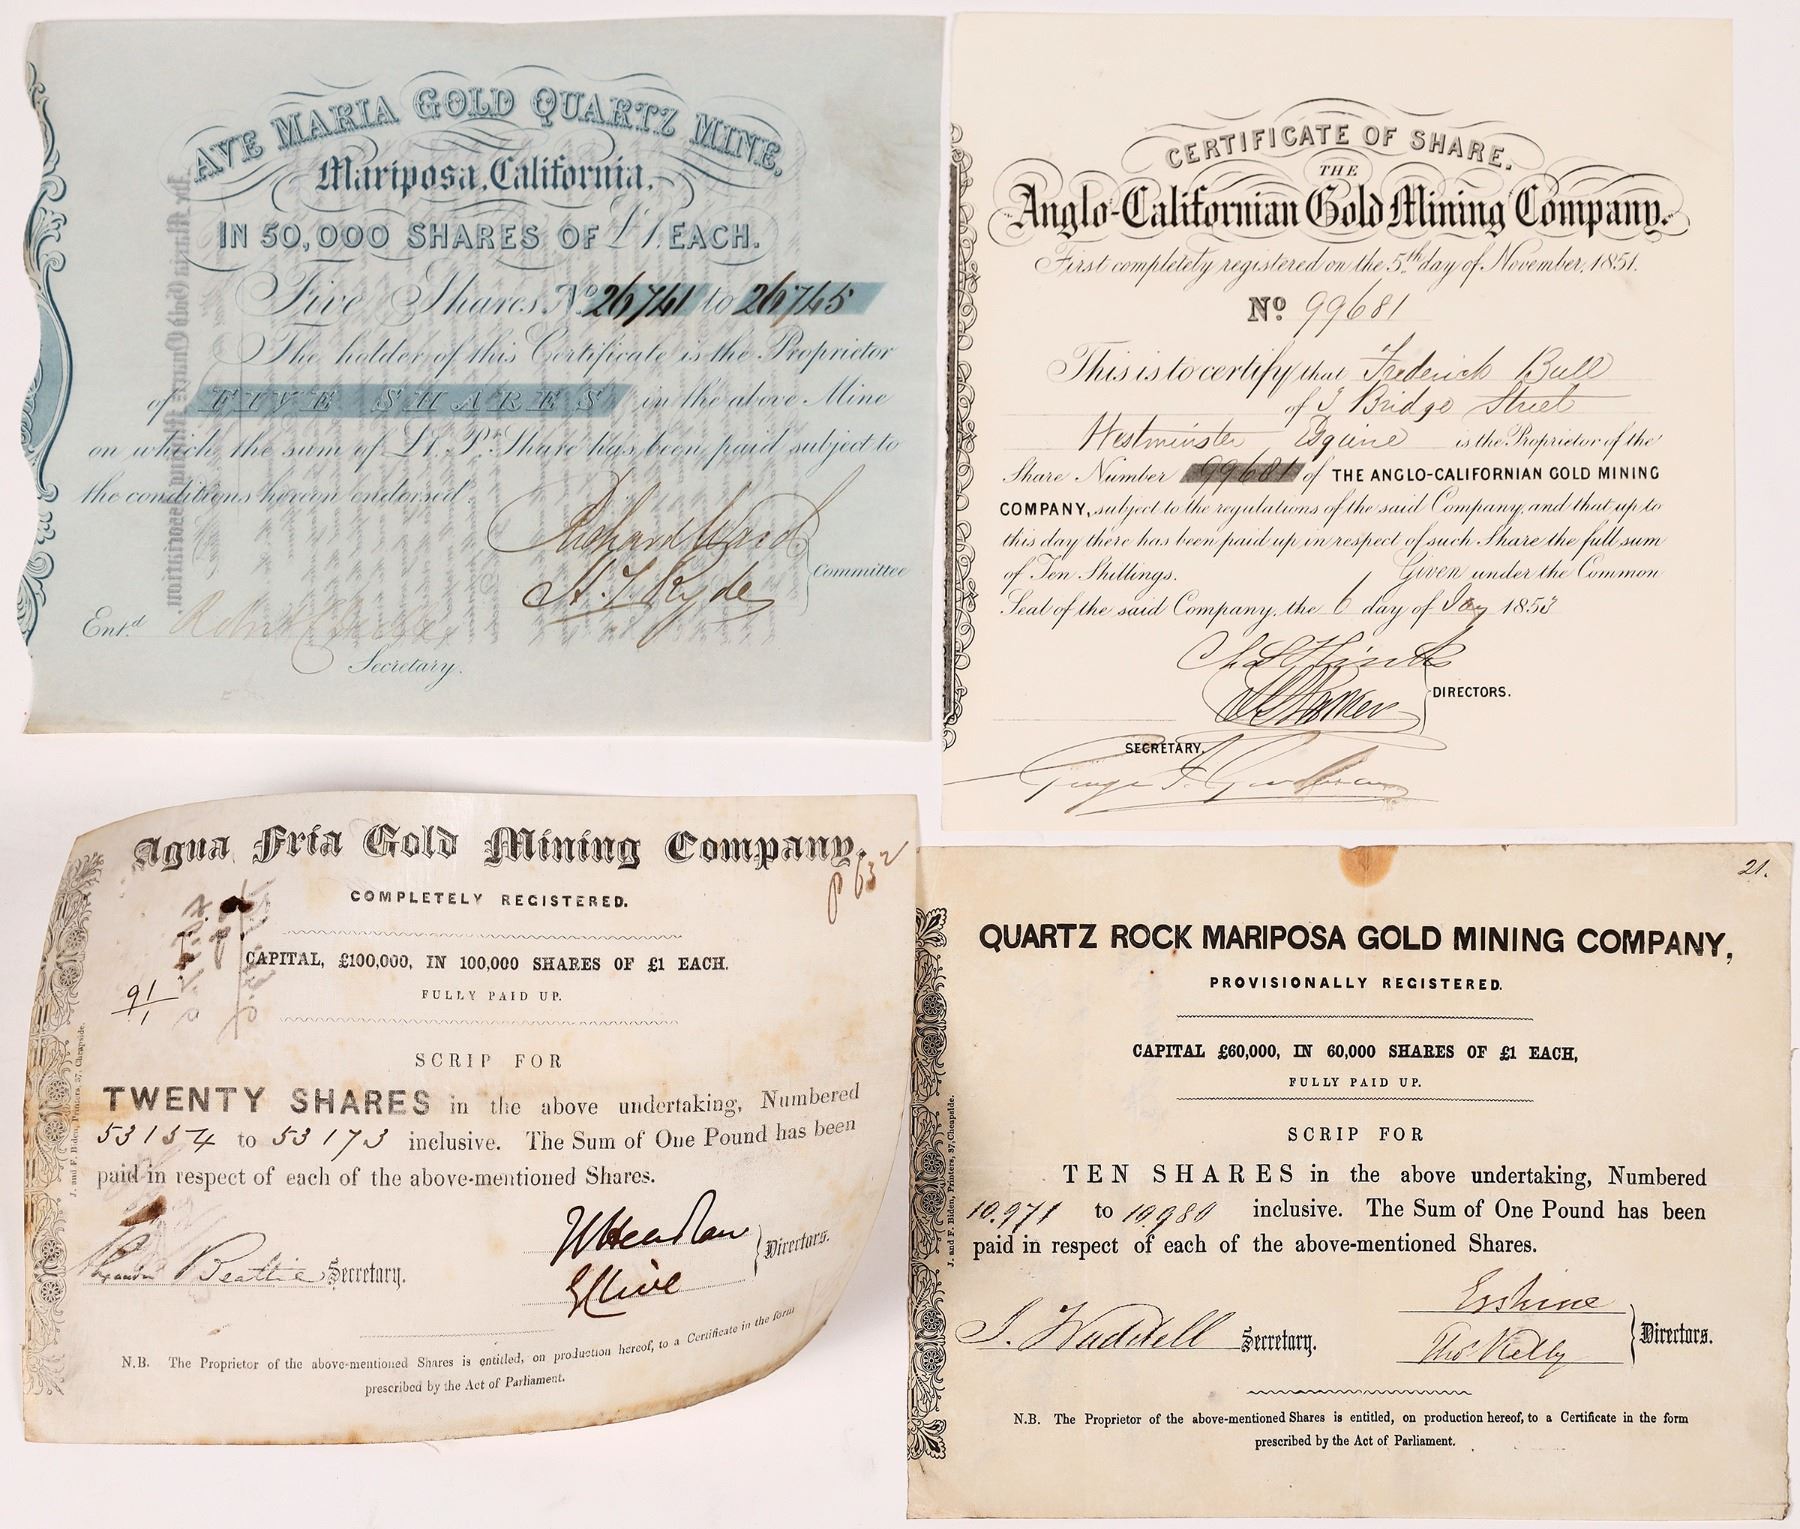 AVE MARIA GOLD QUARTZ MINE.
Mariposa, California.
IN 50,000 SHARES OF £1 EACH.
Five Shares. No. 26741 to 26745
The holder of this Certificate is the Proprietor
of FIVE SHARES in the above Mine
on which the sum of £1. Pr. Share has been paid subject to
the conditions hereon endorsed.
Richard Ward
H. T. Ryde
Committee
Entd.
Secretary.
CERTIFICATE OF SHARE.
THE
Anglo-Californian Gold Mining Company.
First completely registered on the 5th day of November, 1851.
No 99681
This is to certify that Frederick Bull
of 3 Bridge Street
Westminster Esquire is the Proprietor of the
Share Number 99681 of THE ANGLO-CALIFORNIAN GOLD MINING
COMPANY, subject to the regulations of the said Company, and that up to
this day there has been paid up, in respect of such Share the full sum
of Ten Shillings. Given under the Common
Seal of the said Company, the 6 day of 1853
DIRECTORS.
SECRETARY.
Agua Fria Gold Mining Company.
P 632
COMPLETELY REGISTERED.
CAPITAL, £100,000, IN 100,000 SHARES OF £1 EACH.
FULLY PAID UP.
91/1
SCRIP FOR
TWENTY SHARES in the above undertaking, Numbered
53154 to 53173 inclusive. The Sum of One Pound has been
paid in respect of each of the above-mentioned Shares.
Beattie Secretary.
Clive
Directors.
N.B. The Proprietor of the above-mentioned Shares is entitled, on production hereof, to a Certificate in the form
prescribed by the Act of Parliament.
J. and F. Biden, Printers, 37, Cheapside.
21.
QUARTZ ROCK MARIPOSA GOLD MINING COMPANY,
PROVISIONALLY REGISTERED.
CAPITAL £60,000, IN 60,000 SHARES OF £1 EACH,
FULLY PAID UP.
SCRIP FOR
TEN SHARES in the above undertaking, Numbered
10.971 to 10.980 inclusive. The Sum of One Pound has been
paid in respect of each of the above-mentioned Shares.
Erskine
J. Waddell Secretary.
Thos Kelly
Directors.
N.B. The Proprietor of the above-mentioned Shares is entitled, on production hereof, to a Certificate in the form
prescribed by the Act of Parliament.
J. and F. Biden, Printers, 37, Cheapside.